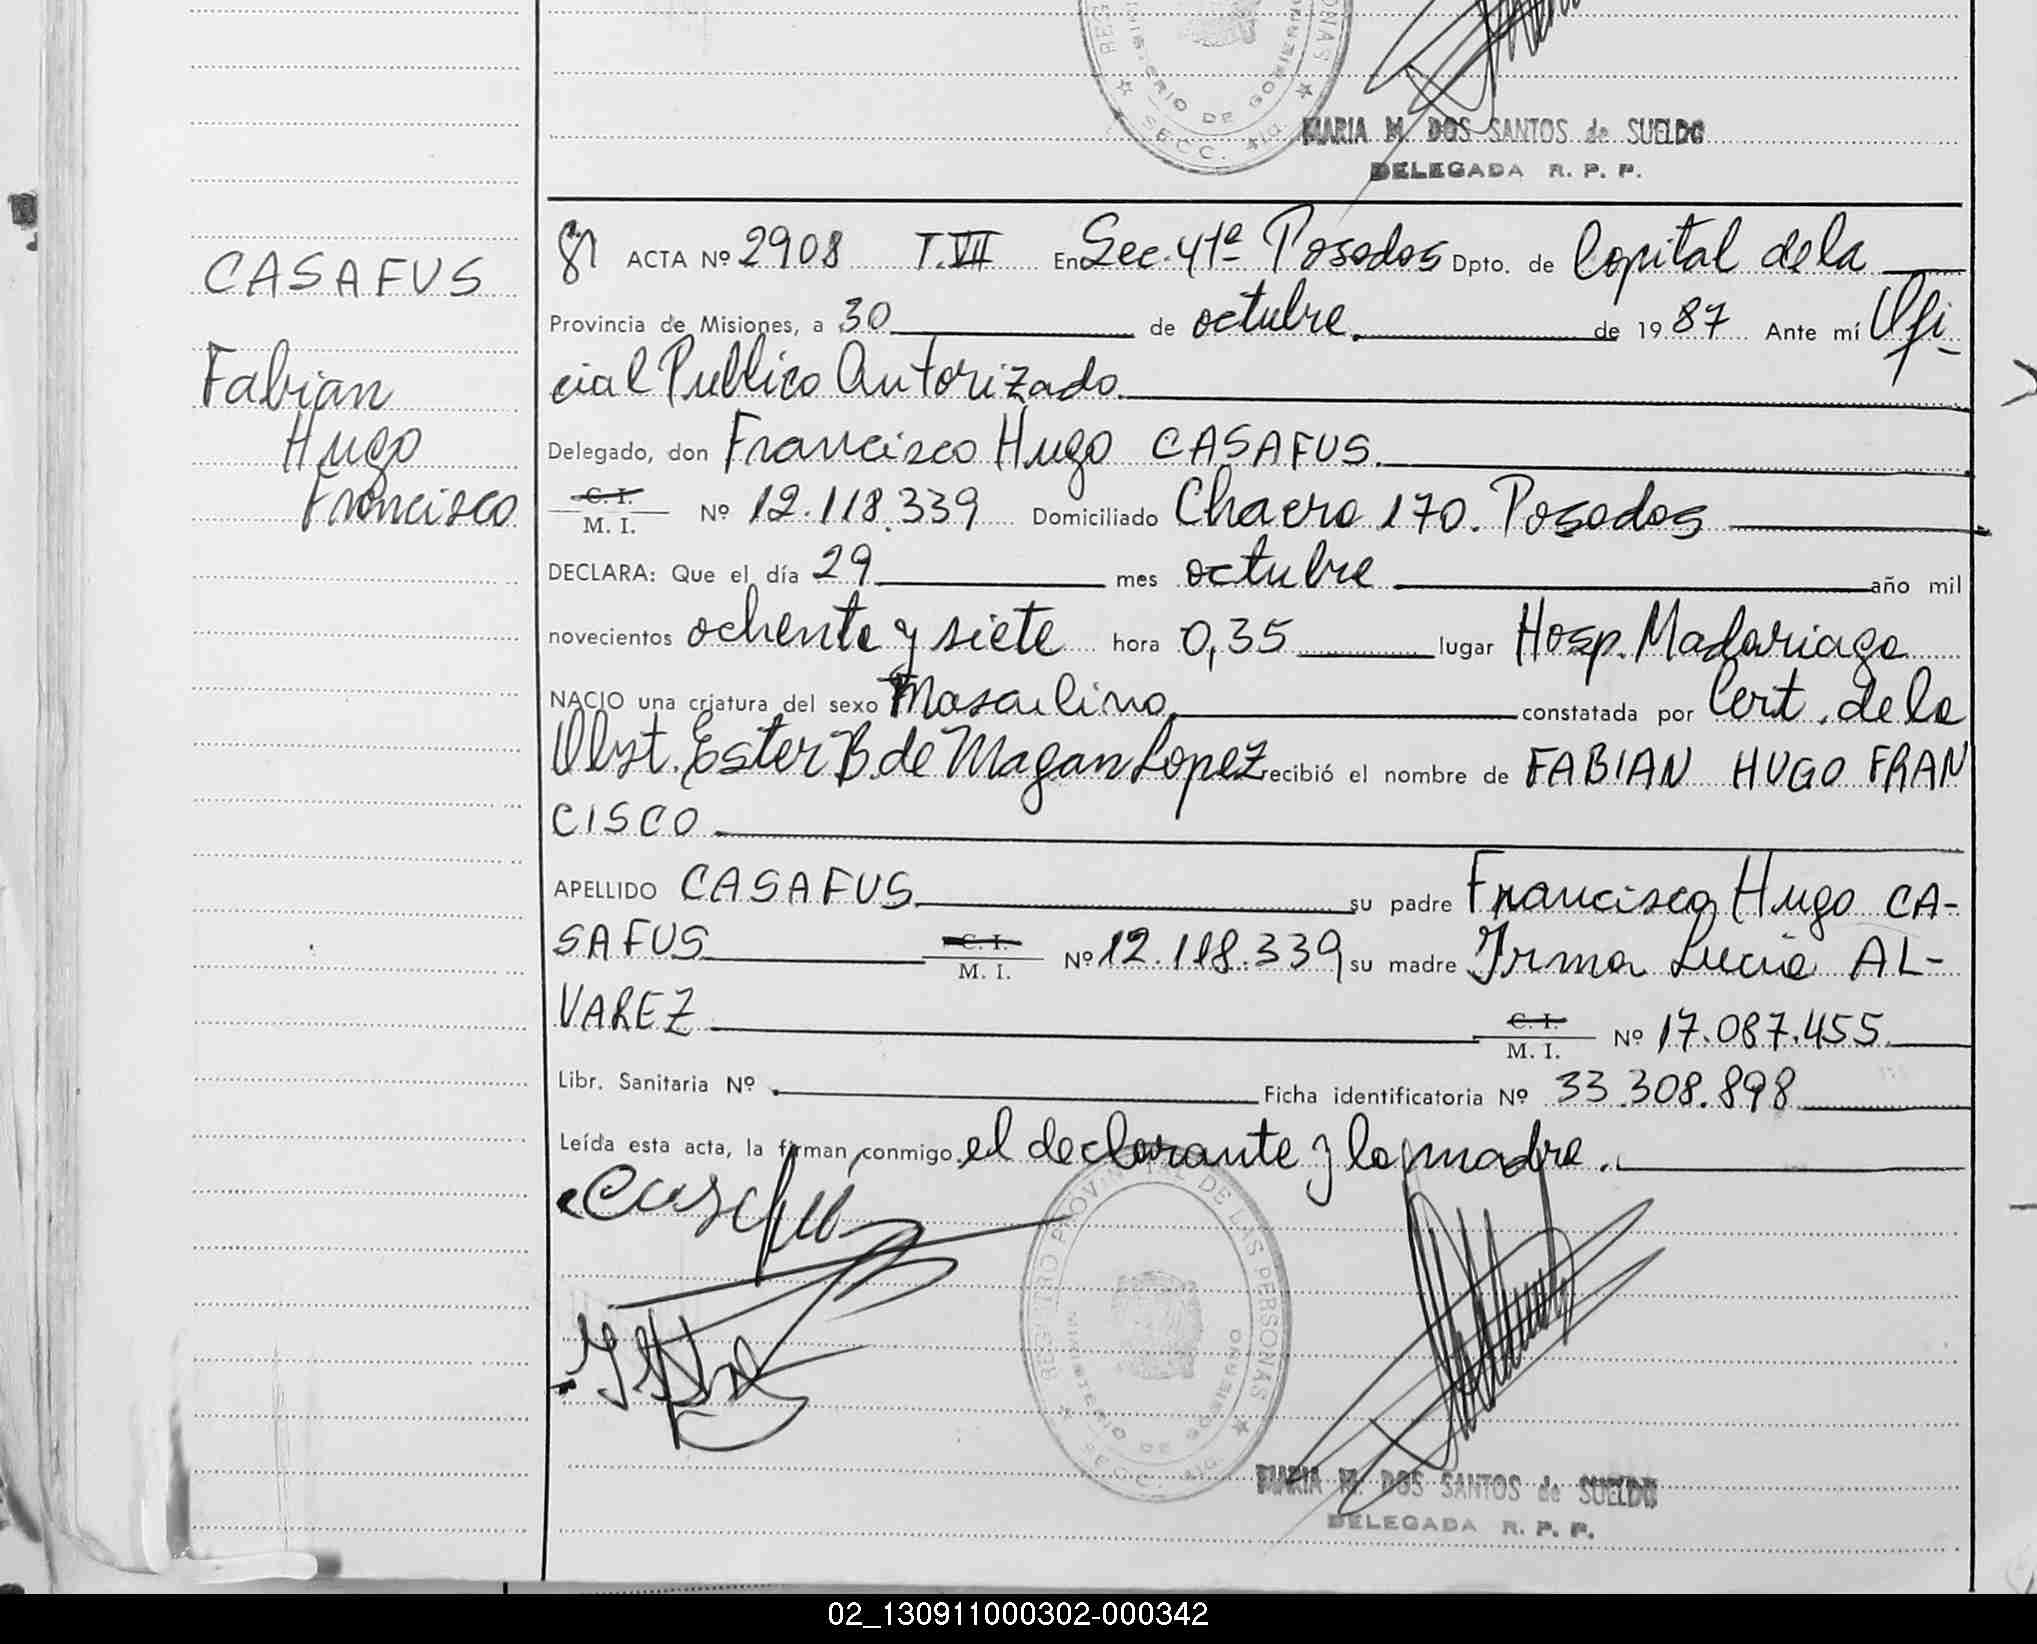 MINISTERIO DE GOBIERNO
SECC. 41a.
MARIA M. DOS SANTOS de SUELDO
DELEGADA R. P. P.
CASAFUS
Fabian
Hugo
Francisco
ACTA Nº 2908 T.VII En Sec. 41ª Posadas Dpto. de Capital de la
Provincia de Misiones, a 30 de octubre. de 1987 Ante mí Ofi-
cial Publico Autorizado.
Delegado, don Francisco Hugo CASAFUS.
C. I.
M. I. Nº 12.118.339 Domiciliado Chacra 170. Posadas
DECLARA: Que el día 29 mes octubre año mil
novecientos ochenta y siete hora 0,35 lugar Hosp. Madariaga
NACIO una criatura del sexo Masculino, constatada por Cert. de la
Obst. Ester B. de Magan Lopez recibió el nombre de FABIAN HUGO FRAN
CISCO
APELLIDO CASAFUS su padre Francisco Hugo CA-
SAFUS C. I. M. I. Nº 12.118.339 su madre Irma Lucia AL-
VAREZ C. I. M. I. Nº 17.087.455.
Libr. Sanitaria Nº Ficha identificatoria Nº 33.308.898
Leída esta acta, la firman conmigo el declarante y la madre.
REGISTRO PROVINCIAL DE LAS PERSONAS
MINISTERIO DE GOBIERNO
SECC. 41a.
MARIA M. DOS SANTOS de SUELDO
DELEGADA R. P. P.
02_130911000302-000342